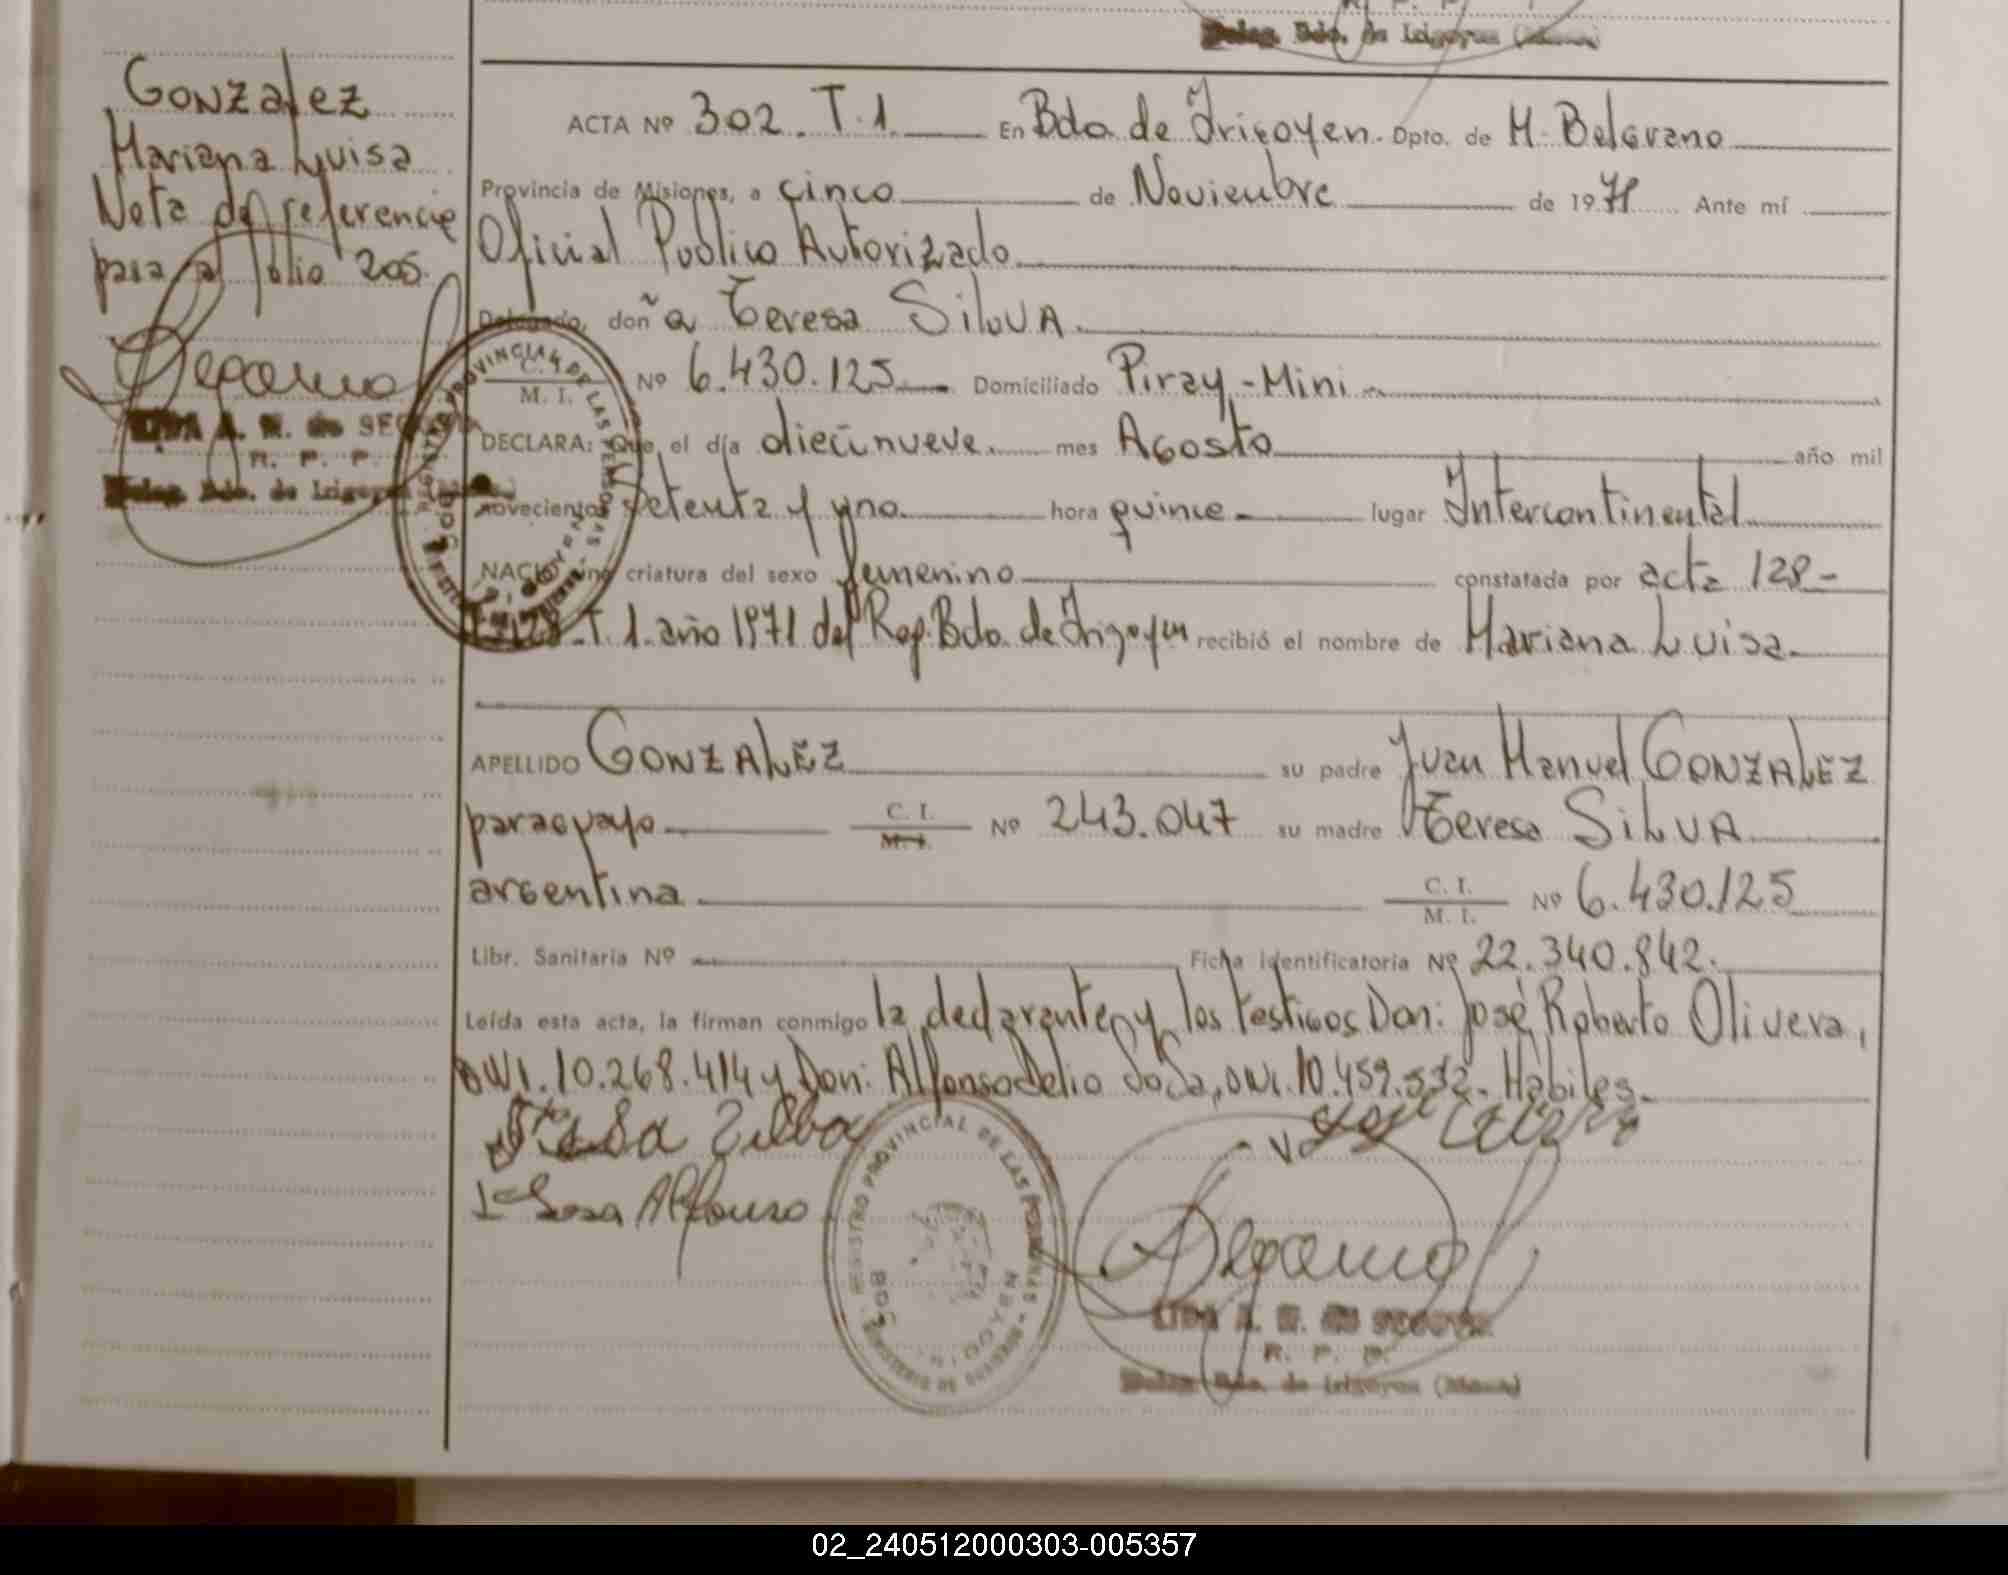 Deleg. Bdo. de Irigoyen (Mnes.)
Gonzalez
Mariana Luisa
Nota de referencia
para al folio 205.
LIDIA A. M. de SEGOVIA
R. P. P.
Deleg. Bdo. de Irigoyen
ACTA Nº 302. T.1. En Bdo de Irigoyen. Dpto. de M. Belgrano
Provincia de Misiones, a cinco de Noviembre de 1971 Ante mí
Oficial Publico Autorizado
Delegado, doña Teresa SilVA.
C. I. M. I. Nº 6.430.125 Domiciliado Piray-Mini
DECLARA: Que el día diecinueve mes Agosto año mil
novecientos setenta y uno hora quince lugar Intercontinental
NACIO una criatura del sexo femenino constatada por acta 128-
T.1. año 1971 del Reg. Bdo. de Irigoyen recibió el nombre de Mariana Luisa.
APELLIDO GONZALEZ su padre Juan Manuel GONZALEZ
paraguayo C. I. M. I. Nº 243.047 su madre Teresa SiLVA
argentina C. I. M. I. Nº 6.430.125
Libr. Sanitaria Nº Ficha identificatoria Nº 22.340.842.
Leída esta acta, la firman conmigo la declarante y los testigos Don: José Roberto Olivera,
DNI. 10.268.414 y Don: Alfonso Delio Sosa, DNI. 10.459.532. Habiles.
Sosa Alfonso
REGISTRO PROVINCIAL DE LAS PERSONAS - MINISTERIO DE GOBIERNO
LIDIA A. M. de SEGOVIA
R. P. P.
Deleg. Bdo. de Irigoyen (Mnes.)
02_240512000303-005357